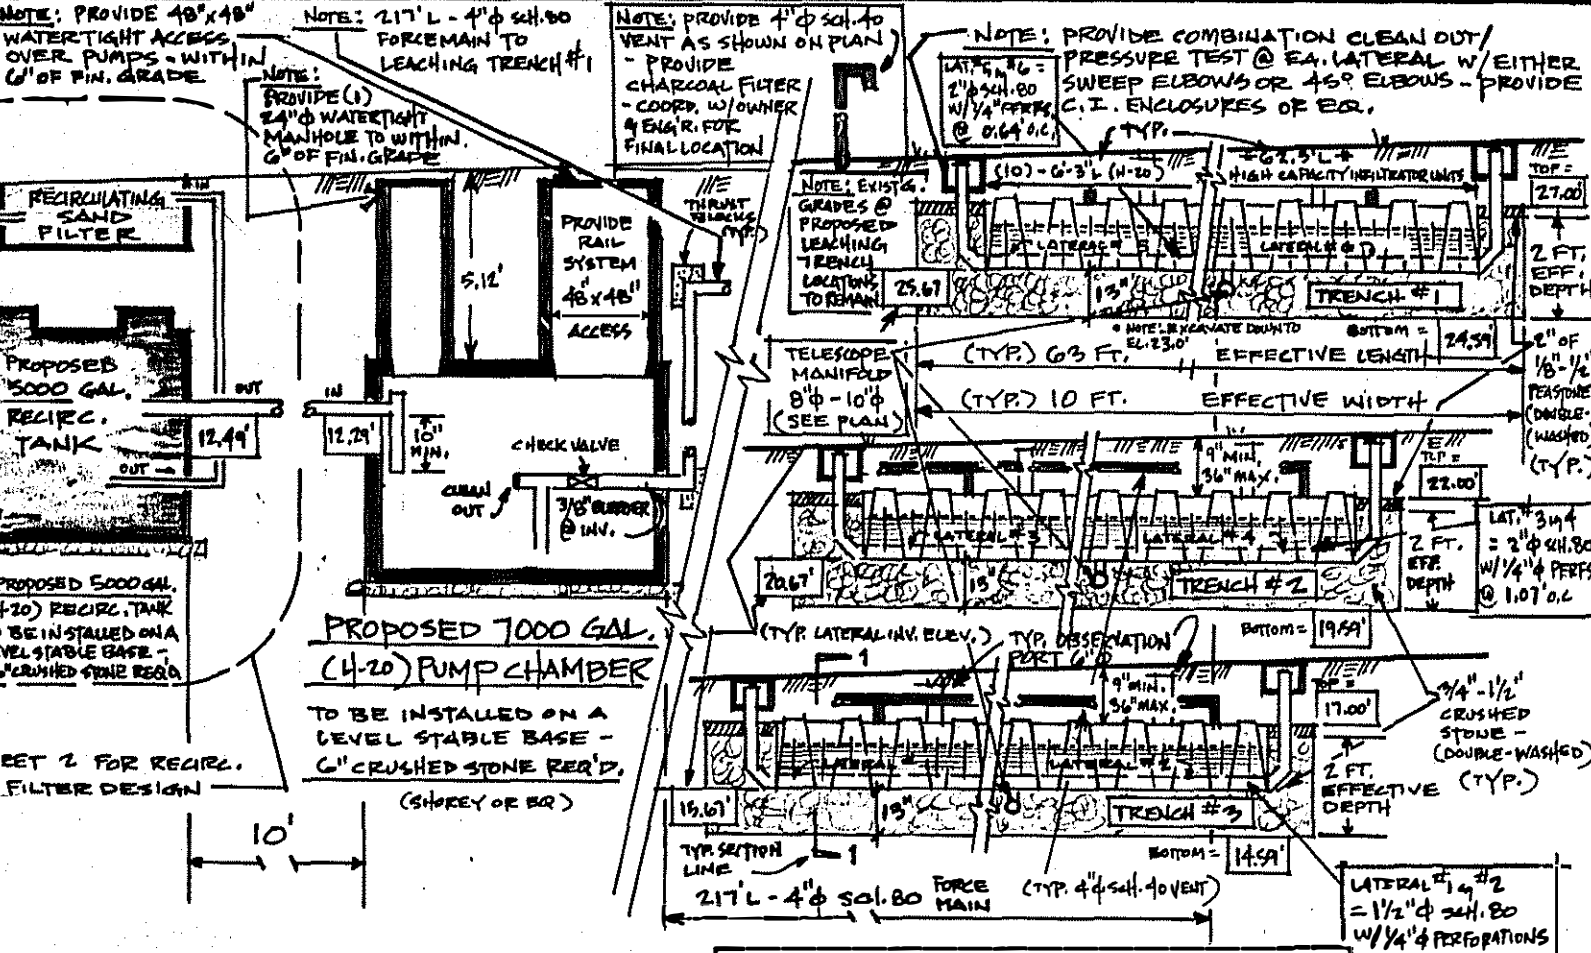 NOTE: PROVIDE 48"x48"
WATERTIGHT ACCESS
OVER PUMPS - WITHIN
6" OF FIN. GRADE
NOTE:
PROVIDE (1)
24"Φ WATERTIGHT
MANHOLE TO WITHIN
6" OF FIN. GRADE
NOTE: 217' L - 4"Φ SCH. 80
FORCEMAIN TO
LEACHING TRENCH #1
NOTE: PROVIDE 4"Φ SCH. 40
VENT AS SHOWN ON PLAN
- PROVIDE
CHARCOAL FILTER
- COORD. W/OWNER
& ENG'R. FOR
FINAL LOCATION
NOTE: PROVIDE COMBINATION CLEAN OUT/
PRESSURE TEST @ EA. LATERAL W/ EITHER
SWEEP ELBOWS OR 45° ELBOWS - PROVIDE
C.I. ENCLOSURES OR EQ.
2"Φ SCH. 80
W/ 1/4" PERFS.
@ 0.64' O.C.
TYP.
(10) - 6'-3" L (H-20)
62.5' L
HIGH CAPACITY INFILTRATOR UNITS
TOP =
27.00'
IN
RECIRCULATING
SAND
FILTER
5.12'
PROVIDE
RAIL
SYSTEM
48"x48"
ACCESS
THRUST
BLOCKS
(TYP.)
NOTE: EXIST'G.
GRADES @
PROPOSED
LEACHING
TRENCH
LOCATIONS
TO REMAIN
25.67
13"
TRENCH #1
2 FT.
EFF.
DEPTH
NOTE: EXCAVATE DOWN TO
EL. 23.0'
BOTTOM =
24.59'
2" OF
1/8"-1/2"
PEASTONE
(DOUBLE-
WASHED)
(TYP.)
(TYP.) 63 FT. EFFECTIVE LENGTH
(TYP.) 10 FT. EFFECTIVE WIDTH
TELESCOPE
MANIFOLD
8"Φ - 10"Φ
(SEE PLAN)
PROPOSED
5000 GAL.
RECIRC.
TANK
OUT
12.49'
OUT
IN
12.29'
10"
MIN.
CHECK VALVE
CLEAN
OUT
3/8" BLEEDER
@ INV.
9" MIN.
36" MAX.
TOP =
22.00'
LATERAL # 3
LATERAL # 4
20.67'
13"
TRENCH #2
2 FT.
EFF.
DEPTH
LAT. # 3 & 4
= 2"Φ SCH. 80
W/ 1/4"Φ PERFS
@ 1.07' O.C.
BOTTOM = 19.59'
PROPOSED 5000 GAL.
RECIRC. TANK
BE INSTALLED ON A
STABLE BASE -
CRUSHED STONE REQ'D
PROPOSED 7000 GAL.
(H-20) PUMP CHAMBER
TO BE INSTALLED ON A
LEVEL STABLE BASE -
6" CRUSHED STONE REQ'D.
(SHOREY OR EQ)
(TYP. LATERAL INV. ELEV.)
TYP. OBSERVATION
PORT 6"Φ
1
9" MIN.
36" MAX.
TOP =
17.00'
3/4"-1 1/2"
CRUSHED
STONE -
(DOUBLE-WASHED)
(TYP.)
2 FT.
EFFECTIVE
DEPTH
15.67'
13"
TRENCH #3
BOTTOM = 14.59'
2 FOR RECIRC.
FILTER DESIGN
10'
TYP. SECTION
LINE
1
217' L - 4"Φ SCH. 80 FORCE
MAIN
(TYP. 4"Φ SCH. 40 VENT)
LATERAL #1 & #2
= 1 1/2"Φ SCH. 80
W/ 1/4"Φ PERFORATIONS